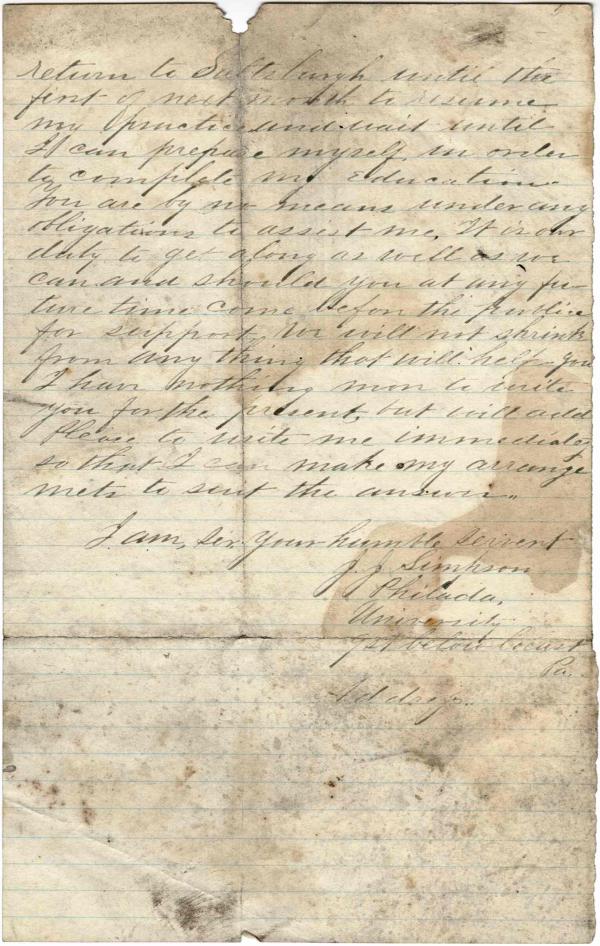 return to Saltsburgh until the
first of next month to resume
my practice and wait until
I can prepare myself in order
to complete my Education.
You are by no means under any
obligations to assist me, It is our
duty to get along as well as we
can and should you at any fu-
ture time come before the public
for support, We will not shrink
from any thing that will help you
I have nothing more to write
you for the present, but will add
Please to write me immediately
so that I can make my arrange
mets to suit the answer.
I am, Sir, your humble servent
J. J. Simpson
Philada,
University
9st below Locust
Pa.
Address